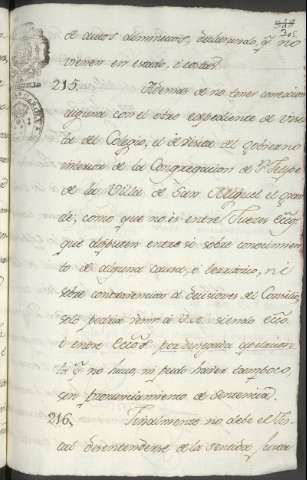 305
de autos diminutos, declarando, q.e no
vienen en estado, ó costas.
215. Ademas de no tener conexion
alguna con el otro expediente de visi
ta del Colegio, el de Visita del govierno
interior de la Congregacion de S.n Felipe
de la Villa de San Miguel el gran
de; como que no es entre Juezes ecc.os
que disputen entre si sobre conocimien
to de alguna causa, ó territorio, ni
sobre contravencion á decisiones del Concilio,
solo podria venir á V.A. siendo ecc.o
ó entre ecc.os por denegada apelacion
la q.e no huvo, ni pudo haver tampoco,
sin pronunciamiento de sentencia.
216. Finalmente no debe el Fis
cal desentenderse de la